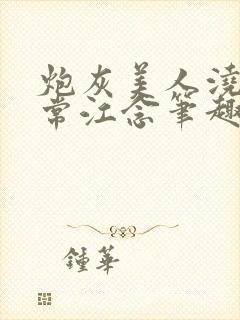 炮灰美人澆
常江念筆趣
鍾華